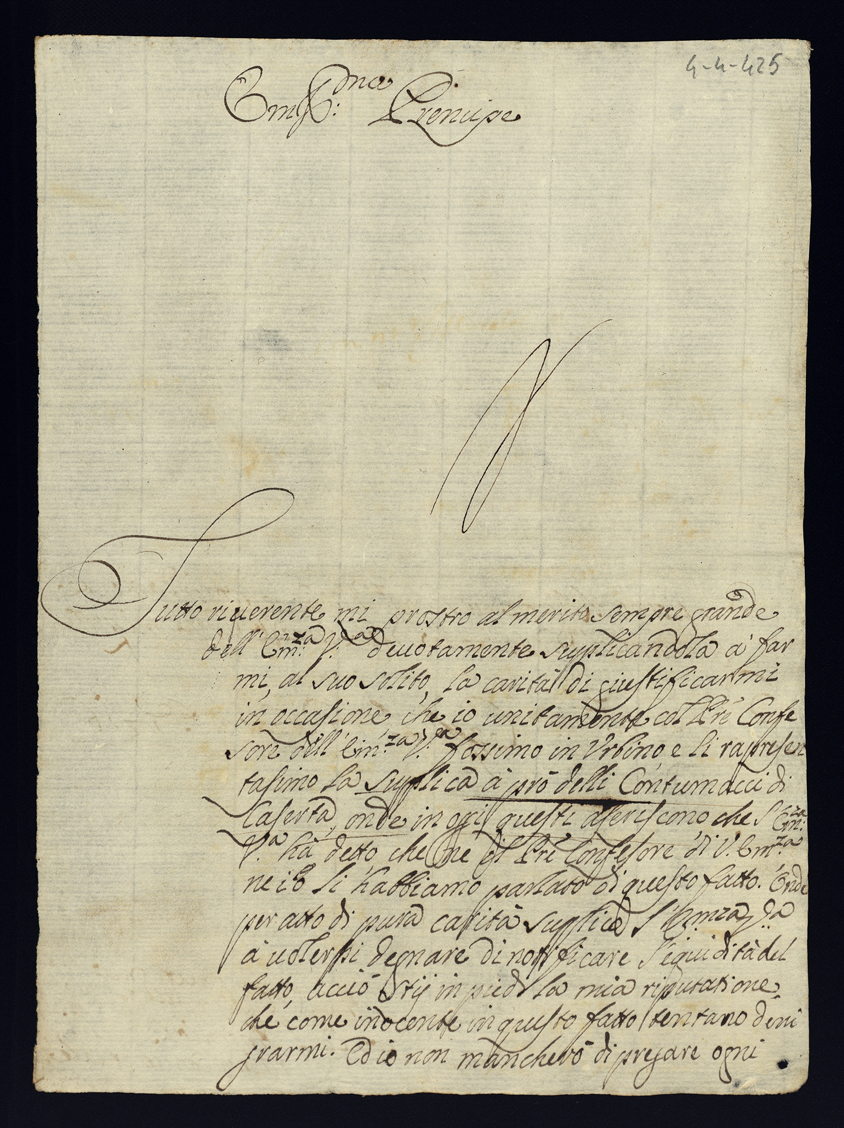 4-4-425
Em.mo Principe
Tutto riuerente mi prostro al merito sempre grande
dell'Em.za V.a deuotamente suplicandola à far
mi, al suo solito, la carità di giustificarmi
in occasione che io unitamente col Prē Confe
sore dell'Em.za V.a fossimo in Vrbino e li rapresen
tasimo la suplica à prò delli Contumacci di
Caserta, onde in ogi questi aseriscono che l'Em.za
V.a hà detto che ne il Prē Confesore di V. Em.za
ne io li habbiamo parlato di questo fatto. Onde
per atto di pura carità suplico l'Em.za V.a
à uolersi degnare di notificare l'equidità del
fatto, acciò stij in piedi la mia riputatione
che come inocente in questo fatto tentano deni
grarmi. Ed io non mancherò di pregare ogni